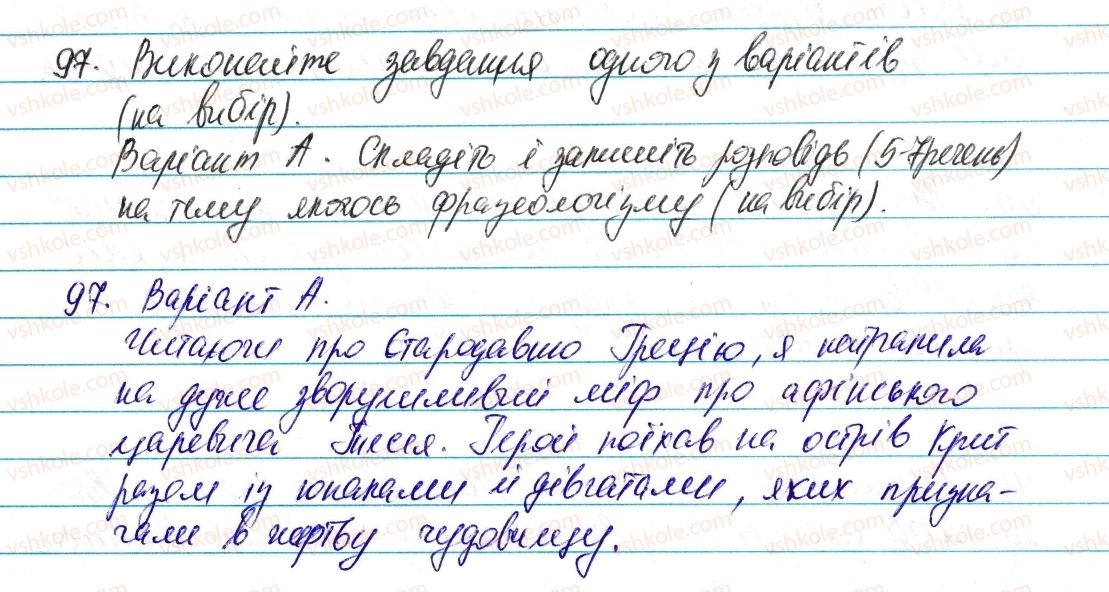 97. Виконайте завдання одного з варіантів
(на вибір).
Варіант А. Складіть і запишіть розповідь (5-7речень)
на тему якогось фразеологізму (на вибір).
97. Варіант А.
Читаючи про Стародавню Грецію, я натрапила
на дуже зворушливий міф про афінського
царевича Тесея. Герой поїхав на острів Крит
разом із юнаками й дівчатами, яких призна-
чали в жертву чудовиську.